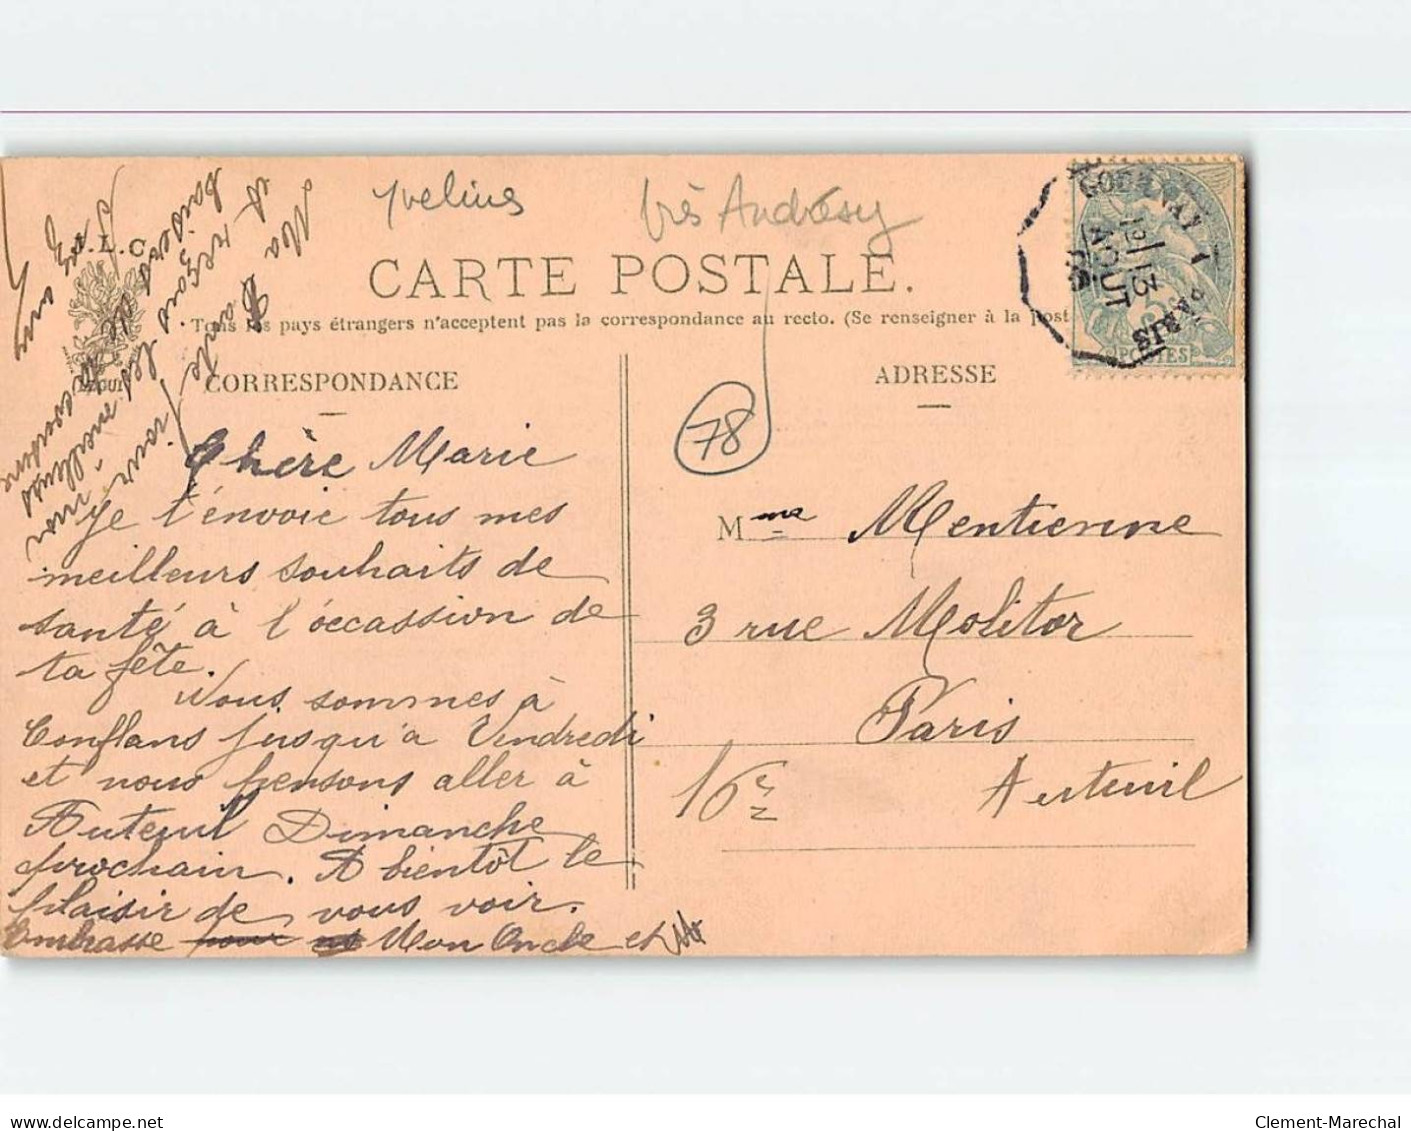 Yvelines
près Andrésy
78
CARTE POSTALE.
Tous les pays étrangers n'acceptent pas la correspondance au recto. (Se renseigner à la post
CORRESPONDANCE
ADRESSE
Chère Marie
Je t'envoie tous mes
meilleurs souhaits de
santé à l'occassion de
ta fête.
Nous sommes à
Conflans jusqu'à Vendredi
et nous pensons aller à
Auteuil Dimanche
prochain. A bientôt le
plaisir de vous voir.
Embrasse Mon Oncle et
Ma Tante pour moi
et reçois les meilleurs
baisers de
Mme Mentienne
3 rue Molitor
Paris
16e Auteuil
L.C
PARIS
13
AOUT
POSTES
Clement-Marechal